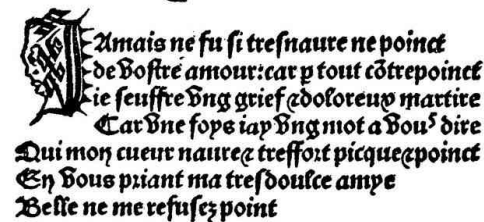 Jamais ne fu si tresnaure ne poinct
de vostre amour:car p tout cõtrepoinct
ie seuffre vng grief ⁊doloreux martire
Car vne foys iay vng mot a vouˢ dire
Qui mon cueur naure⁊ treffort picque⁊poinct
En vous priant ma tresdoulce amye
Belle ne me refusez point